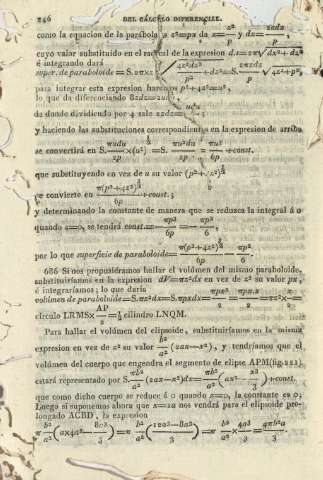 246 DEL CÁLCULO DIFERENCIAL.
como la equacion de la parábola z²=px da x=z²/p y dx=2zdz/p,
cuyo valor substituido en el radical de la expresion ds=2πz√dx²+dz²
é integrando dará
super. de paraboloide=S.2πzx√(4z²dz²/p²+dz²)=S.2πzdz/p √4z²+p²,
para integrar esta expresion haremos p²+4z²=u²,
lo que da diferenciando 8zdz=2udu,
da donde dividiendo por 4 sale 2zdz=
y haciendo las substituciones correspondientes en la expresion de arriba
se convertirá en S.πudu/2p×(u²)½=S.πu²du/2p=πu³/6p+const.
que substituyendo en vez de u su valor (p²+4z²)½
se convierte en π(p²+4z²)³⁄₂/6p+const.;
y determinando la constante de manera que se reduzca la integral á o
quando z=0, se tendrá const=−πp³/6p=−πp²/6,
por lo que superficie de paraboloide=π(p²+4z²)³⁄₂/6p−πp²/6.
686 Si nos propusiéramos hallar el volúmen del mismo paraboloide,
substituiríamos en la expresion dV=πz²dx en vez de z² su valor px,
é integraríamos; lo que daria
volúmen de paraboloide=S.πz²dx=S.πpxdx=πpx²/2=πpx×x/2=πz²×x/2=
círculo LRMS×AP/2=½ cilindro LNQM.
Para hallar el volúmen del elipsoide, substituiríamos en la misma
expresion en vez de z² su valor b²/a²(2ax−x²), y tendríamos que el
volúmen del cuerpo que engendra el segmento de elipse APM(fig.222),
estará representado por S.πb²/a²(2ax−x²)dx=πb²/a²(ax²−x³/3)+const.
que como dicho cuerpo se reduce á o quando x=0, la constante es 0;
Luego si suponemos ahora que x=2a nos vendrá para el elipsoide prolongado ACBD, la expresion
π b²/a²(a×4a²−8a³/3)=π b²/a²(12a³−8a³/3)=π b²/a²×4a³/3=4πb²a/3